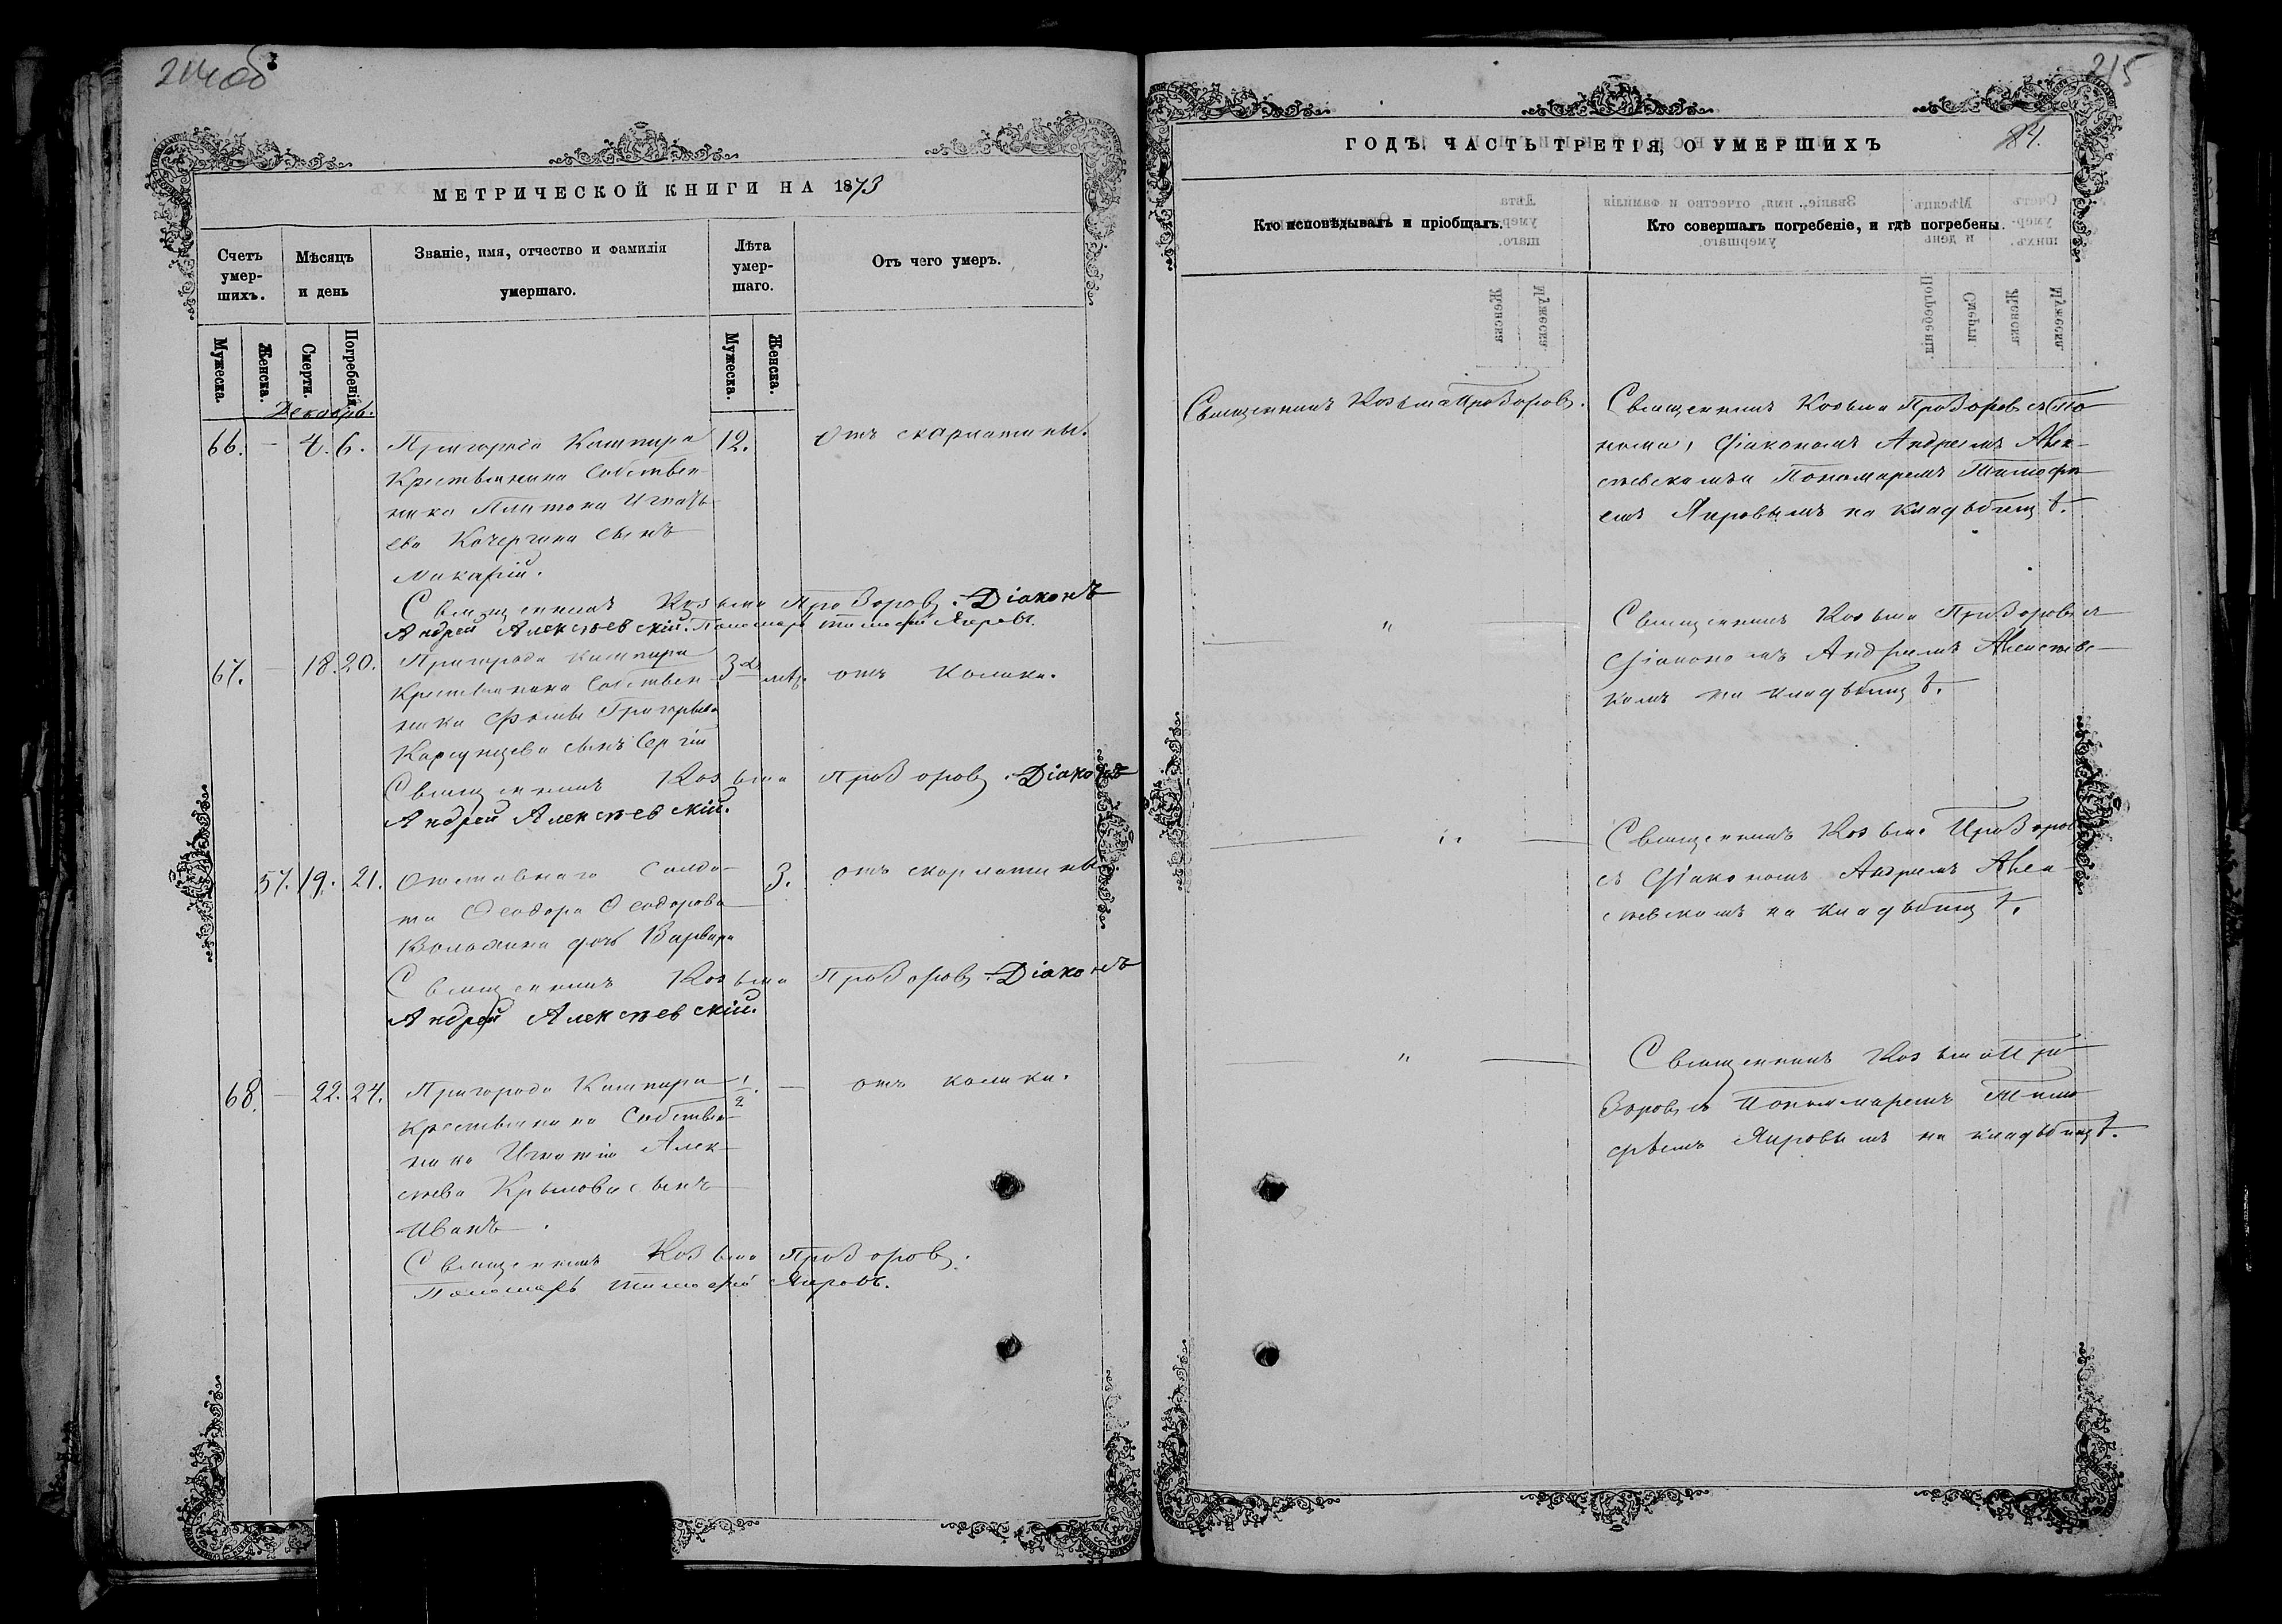 214 об
МЕТРИЧЕСКОЙ КНИГИ НА 1873
Счетъ умер-шихъ.
Мѣсяцъ и день
Званіе, имя, отчество и фамилія умершаго.
Лѣта умер-шаго.
Отъ чего умеръ.
Мужеска.
Женска.
Смерти.
Погребенія.
Мужеска.
Женска.
Декабрь.
66. — 4. 6. Пригорода Кашпира 12. Отъ скарлатины.
Крестьянина Собствен-
ника Платона Игнать
ева Кочергина сынъ
Макарій.
Священникъ Козьма Прозоровъ. Діаконъ
Андрей Алексѣевскій. Пономарь Тимофей Яировъ.
67. — 18. 20. Пригорода Кашпира 3 мѣ. отъ колики.
Крестьянина Собствен-
ника Фомы Григорьева
Карсунцева сынъ Сергій
Священникъ Козьма Прозоровъ. Діаконъ
Андрей Алексѣевскій.
57. 19. 21. Отставнаго Солда- 3. отъ скарлатины
та Ѳеодора Ѳеодорова
дочь Варвара
Священникъ Козьма Прозоровъ. Діаконъ
Андрей Алексѣевскій.
68. — 22. 24. Пригорода Кашпира 1/2. — отъ колики.
крестьянина Собствен-
ника Игнатія Алек-
сѣева Крылова сынъ
Иванъ.
Священникъ Козьма Прозоровъ.
Пономарь Тимофей Яировъ.
215
ГОДЪ. ЧАСТЬ ТРЕТІЯ, О УМЕРШИХЪ
84.
Кто исповѣдывалъ и пріобщалъ.
Кто совершалъ погребеніе, и гдѣ погребены.
Священникъ Козьма Прозоровъ.
Священникъ Козьма Прозоровъ съ
Діакономъ Андреемъ Алек-
сѣевскимъ и Пономаремъ Тимофе
емъ Яировымъ на кладбищѣ.
„
Священникъ Козьма Прозоровъ съ
Діакономъ Андреемъ Алексѣевс-
кимъ на кладбищѣ.
„
Священникъ Козьма Прозоровъ
съ Діакономъ Андреемъ Алек-
сѣевскимъ на кладбищѣ.
„
Священникъ Козьма Про
зоровъ съ Пономаремъ Тимо
фѣемъ Яировымъ на кладбищѣ.